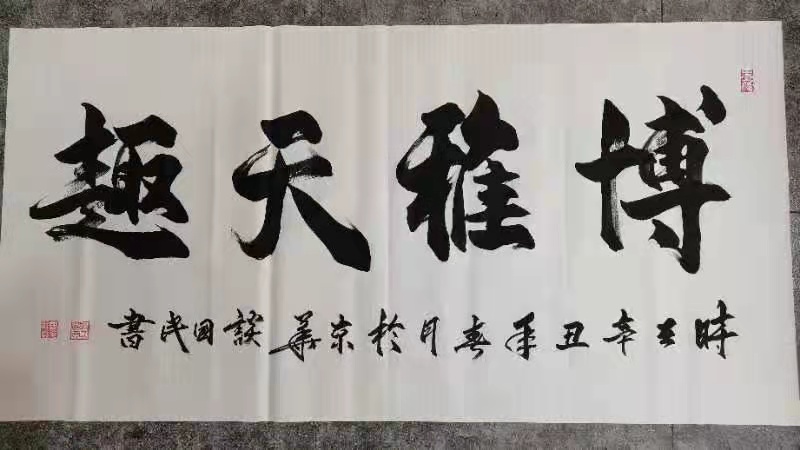 博雅天趣
時在辛丑年春月於京華談国民書